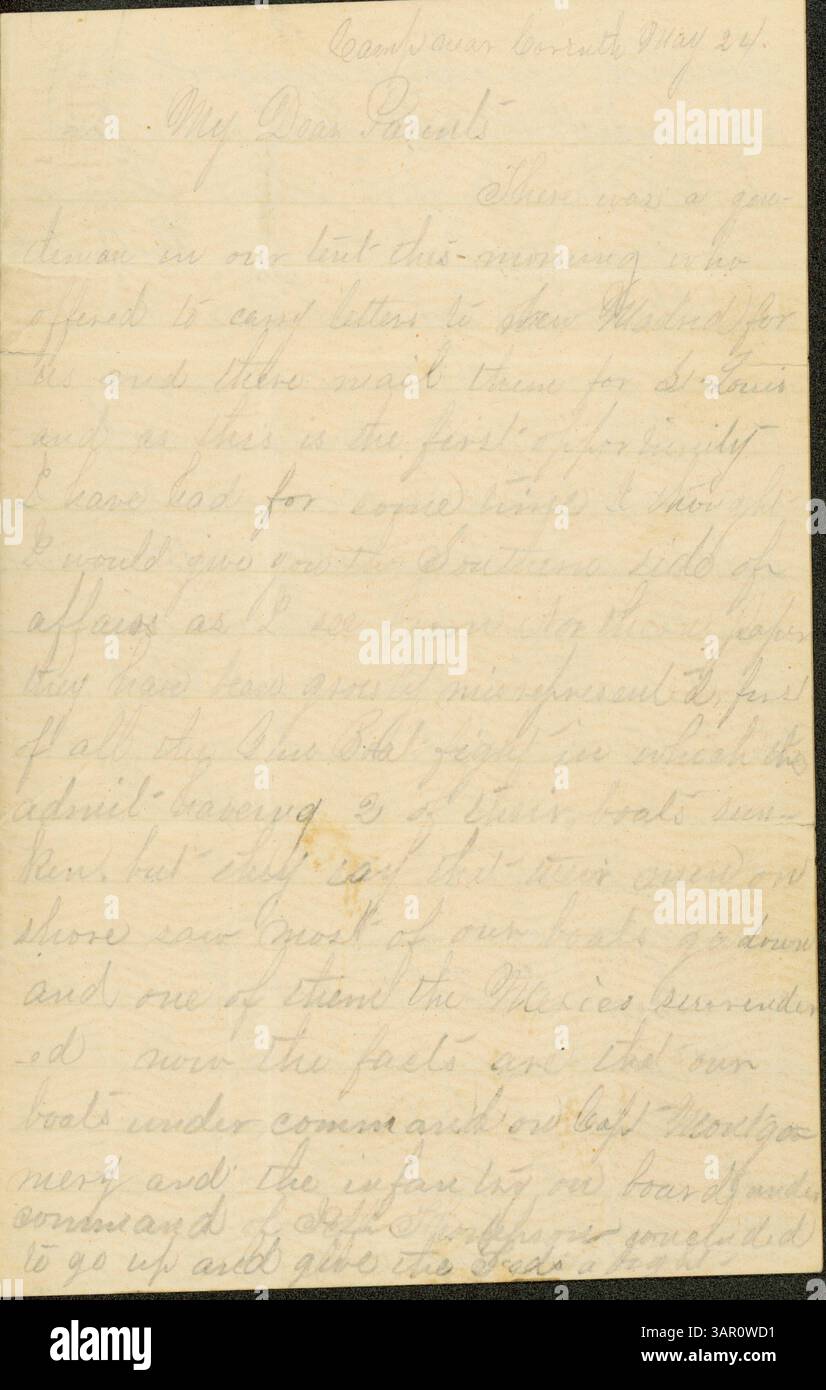 Camp near Corinth May 24.
My Dear Parents
There was a gen-
tleman in our tent this morning who
offered to carry letters to New Madrid for
us and there mail them for St Louis
and as this is the first opportunity
I have had for some time I thought
I would give you the Southern side of
affairs as I see Northern paper
they have been grossly misrepresented first
of all the Gun Boat fight in which the
admit haveing 2 of their boats sun-
ken, but they say that their men on
shore saw most of our boats go down
and one of them the Mexico surrender
-ed now the facts are that our
boats under command on Capt Montgo-
mery and the infantry on board under
command of Jeff Thompson concluded
to go up and give the Feds a fight
alamy
alamy
alamy
alamy
a
a
a
a
a
a
alamy
Image ID: 3AR0WD1
www.alamy.com